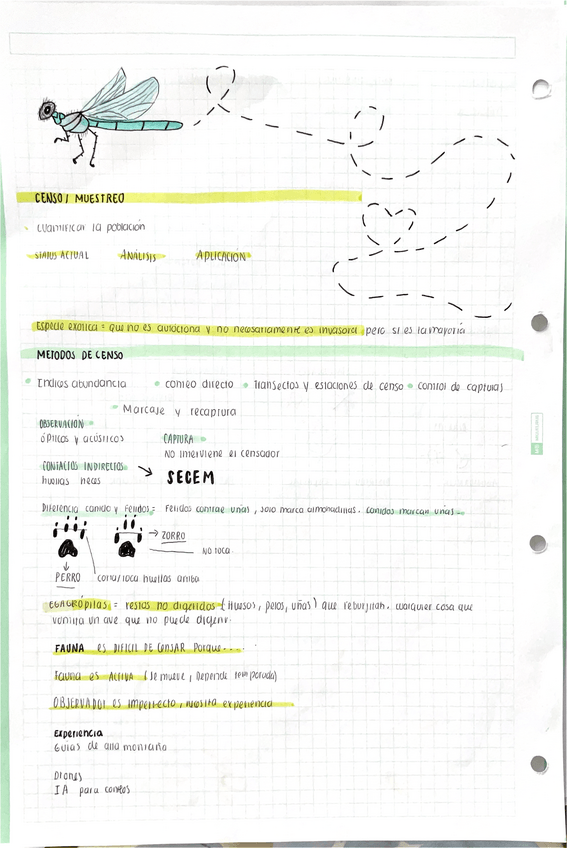 CENSO / MUESTREO
cuantificar la población
STATUS ACTUAL ANÁLISIS APLICACION
Especie exotica = que no es autóctona y no necesariamente es invasora, pero si es la mayoría
METODOS DE CENSO
Indices abundancia conteo directo Transectos y estaciones de censo control de capturas
Marcaje y recaptura
OBSERVACIÓN
ópticos y acústicos CAPTURA
No interviene el censador
CONTACTOS INDIRECTOS → SECEM
huellas heces
Diferencia canido y felidos = Felidos contrae uñas, solo marca almohadillas. canidos marcan uñas
→ ZORRO
No toca
PERRO corta/toca huellas arriba
EGAGRÓPILAS = restos no digeridos (Huesos, pelos, uñas) que regurjitan. cualquier cosa que
vomita un ave que no puede digerir.
FAUNA es DIFICIL DE CENSAR Porque....
Fauna es ACTIVA (se mueve, Depende temporada)
OBSERVADOR es imperfecto, necesita experiencia
Experiencia
Guias de alta montaña
Drones
IA para conteos